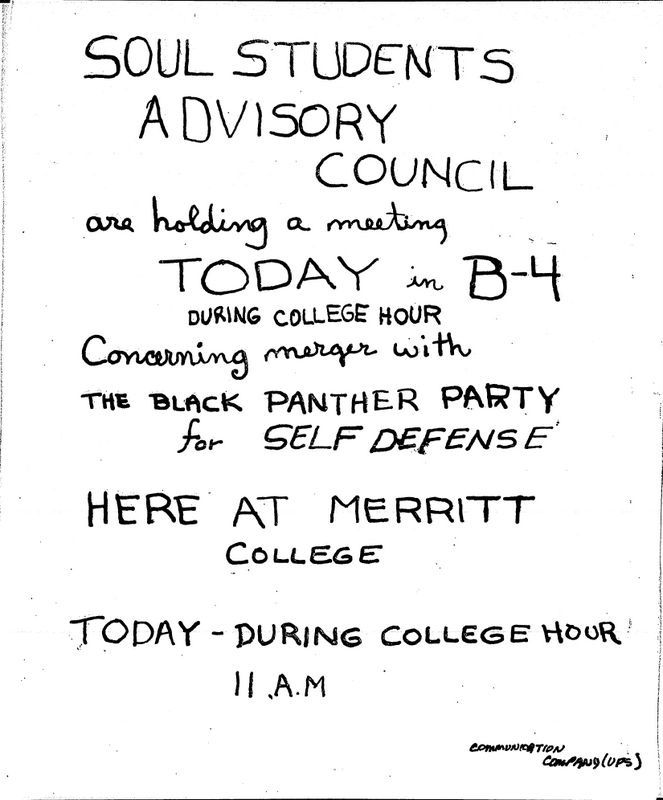 SOUL STUDENTS
ADVISORY
COUNCIL
are holding a meeting
TODAY in B-4
DURING COLLEGE HOUR
Concerning merger with
THE BLACK PANTHER PARTY
for SELF DEFENSE
HERE AT MERRITT
COLLEGE
TODAY - DURING COLLEGE HOUR
11 A.M
COMMUNICATION
COMPANY (UPS)